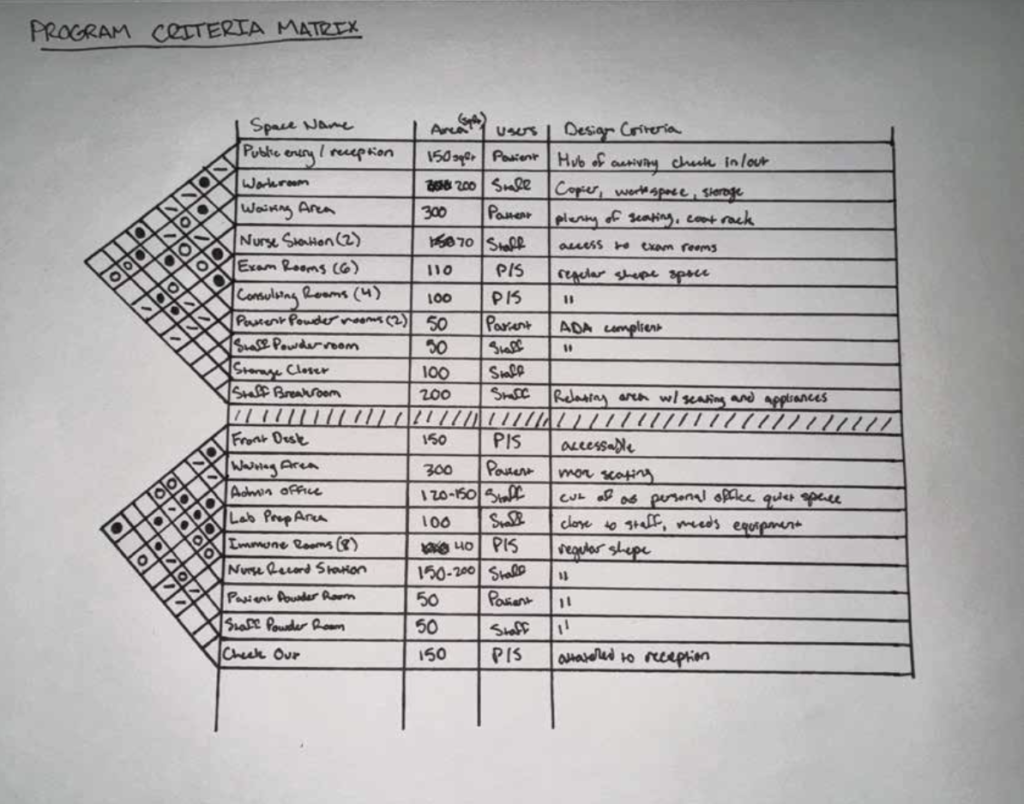 PROGRAM CRITERIA MATRIX
Space Name Area (sqft) Users Design Criteria
Public entry / reception 150 sqft Patient Hub of activity check in/out
Workroom 200 Staff Copier, workspace, storage
Waiting Area 300 Patient plenty of seating, coat rack
Nurse Station (2) 70 Staff access to exam rooms
Exam Rooms (6) 110 P/S regular shape space
Consulting Rooms (4) 100 P/S "
Patient Powder rooms (2) 50 Patient ADA compliant
Staff Powder room 50 Staff "
Storage Closet 100 Staff
Staff Breakroom 200 Staff Relaxing area w/ seating and appliances
Front Desk 150 P/S accessable
Waiting Area 300 Patient more seating
Admin office 120-150 Staff personal office quiet space
Lab Prep Area 100 Staff close to staff, needs equipment
Immune Rooms (8) 40 P/S regular shape
Nurse Record Station 150-200 Staff "
Patient Powder Room 50 Patient "
Staff Powder Room 50 Staff "
Check Out 150 P/S attatched to reception